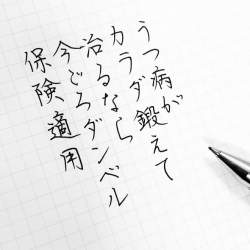 うつ病が
カラダ鍛えて
治るなら
今ごろダンベル
保険適用